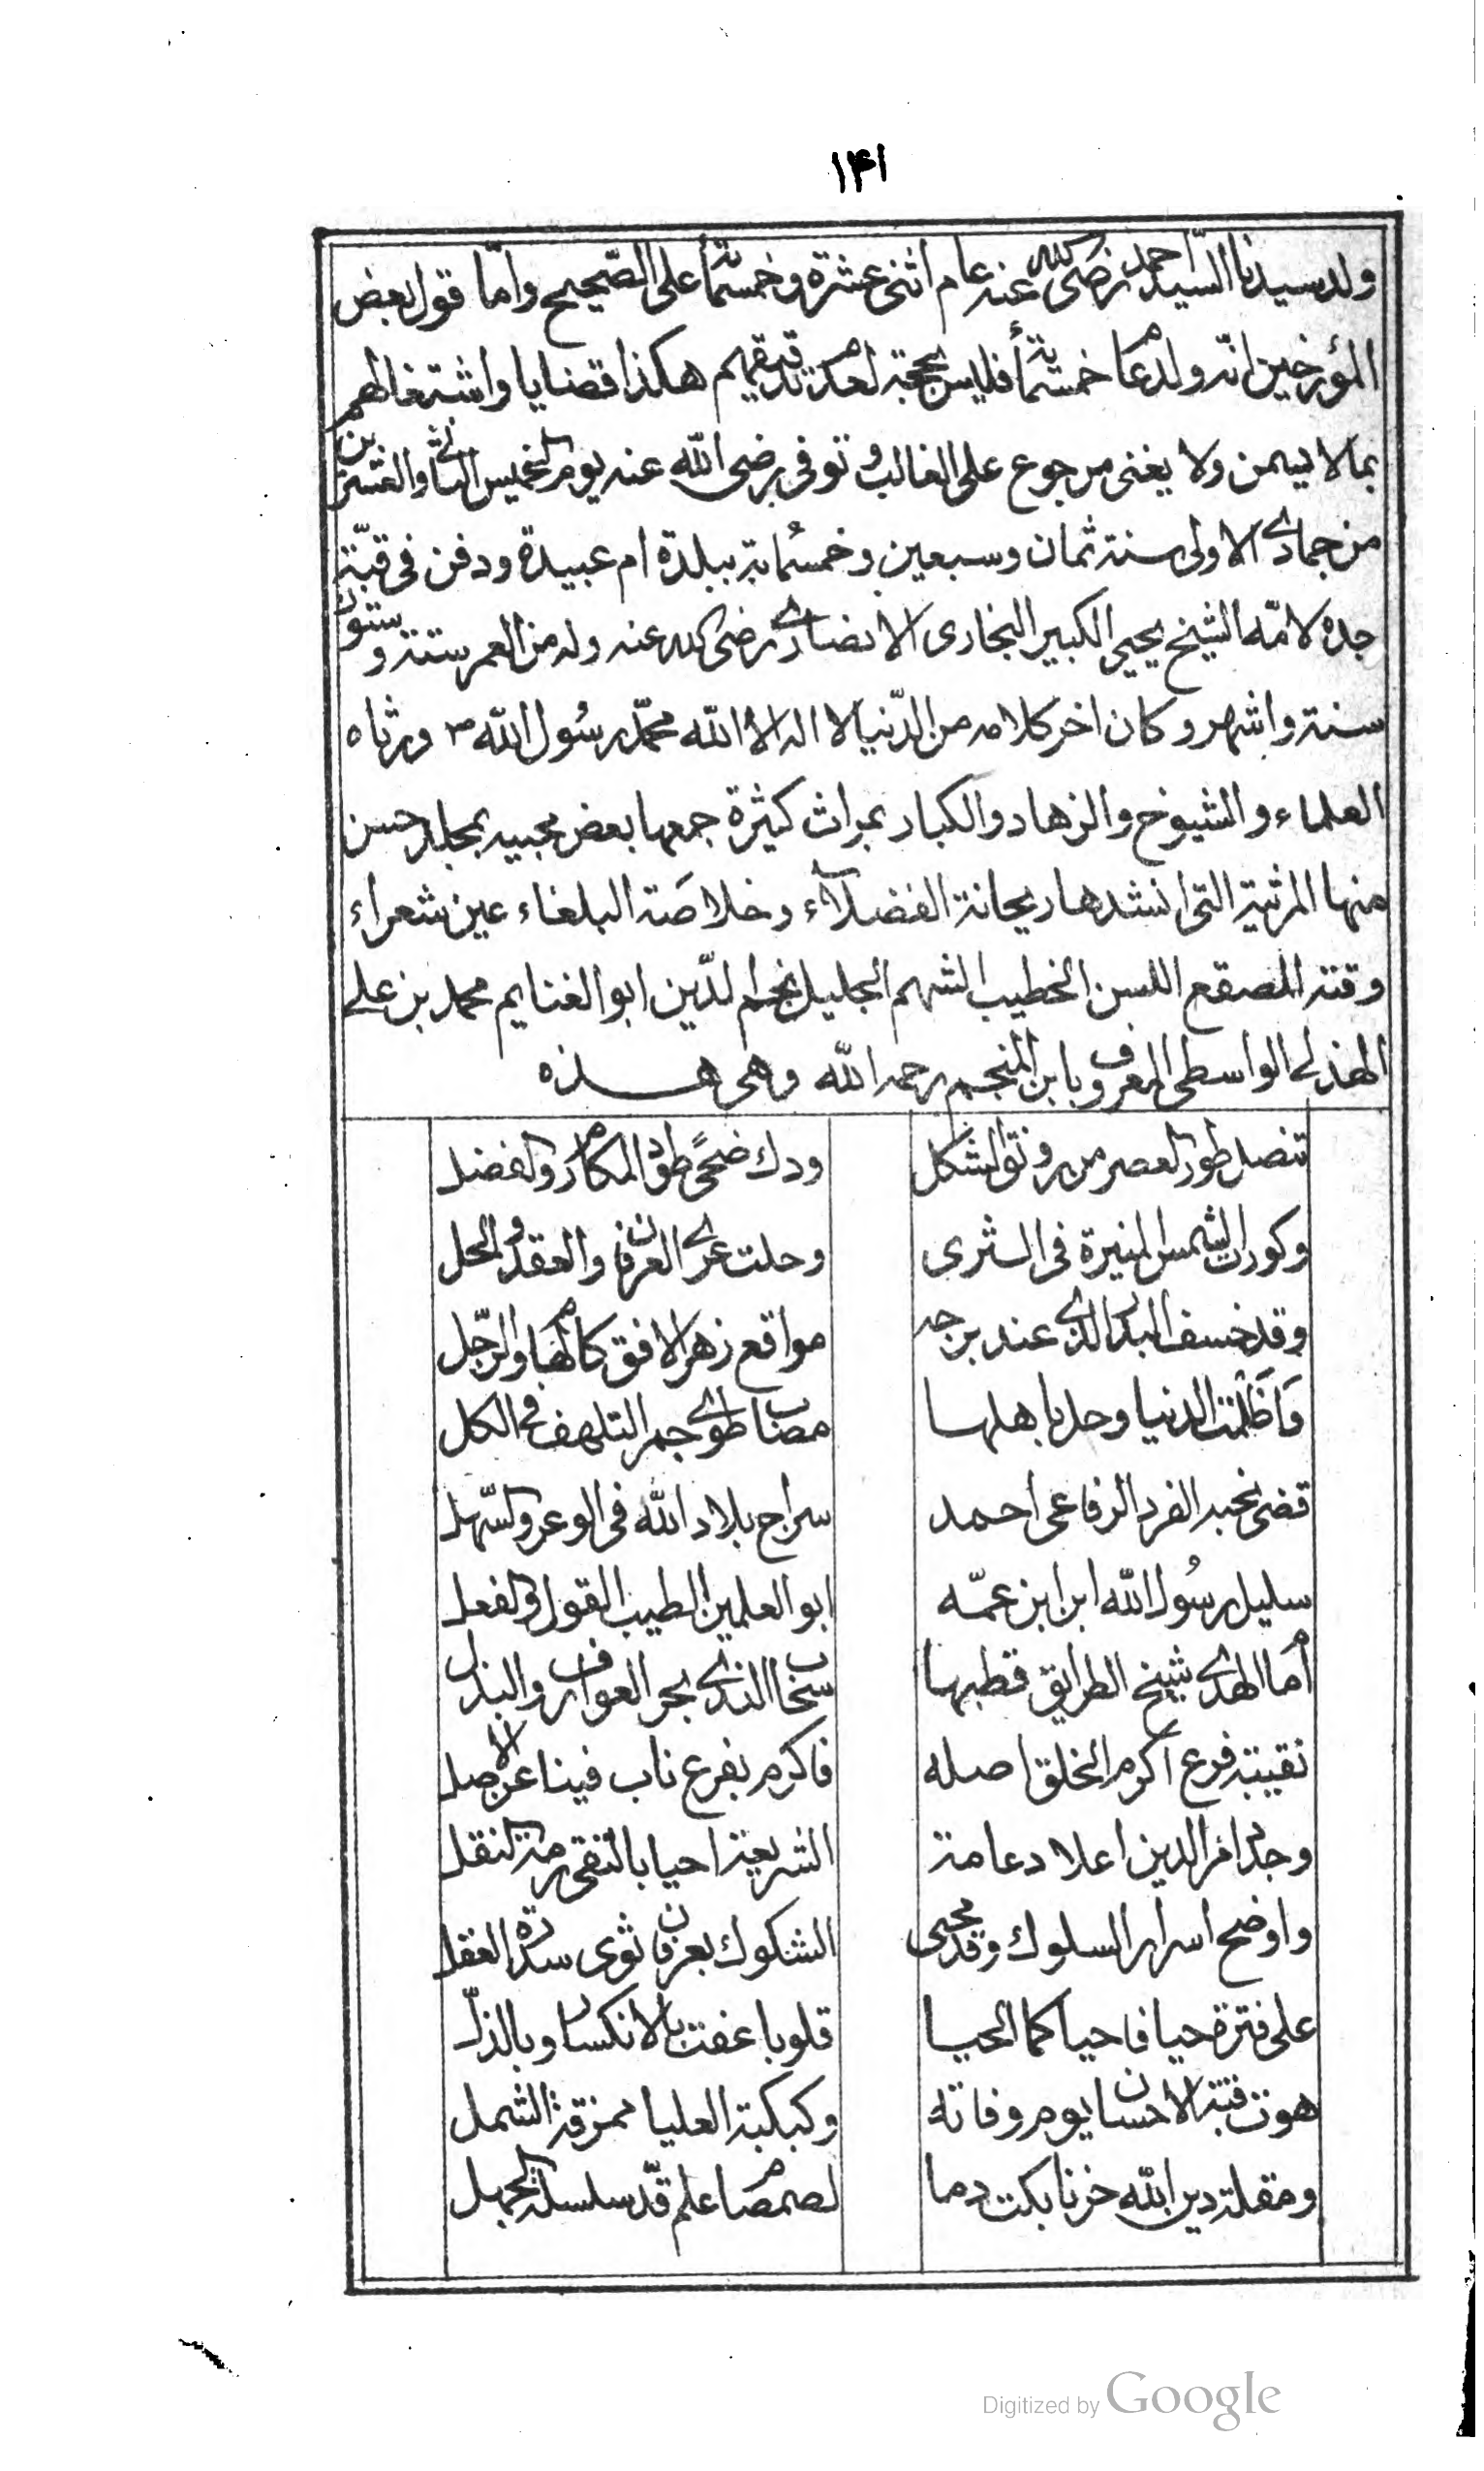 ١٤١
ولد سيدنا السيد احمد رضى الله عنه عام اثنى عشرة وخمسمائة على الصّحيح وامّا قول بعض
المؤرخين انه ولد عام خمسمائة فليس بحجة لعدم تدقيقهم هكذا قضايا واشتغالهم
بما لا يسمن ولا يغنى من جوع على الغالب وتوفى رضى الله عنه يوم الخميس الثانى والعشرين
من جمادى الاولى سنة ثمان وسبعين وخمسُمائة ببلدة ام عبيدة ودفن فى قبّة
جده لامّه الشيخ يحيى الكبير النجارى الانصارى رضى الله عنه وله من العمر ستة وستون
سنة واشهر وكان اخر كلامه من الدّنيا لا اله الا الله محمّد رسُول الله ص ورثاه
العلماء والشيوخ والزهاد والكبار بمراث كثيرة جمعها بعض محبيه بمجلد حسن
منها المرثية التى انشدها ريحانة الفضلاء وخلاصَة البلغاء عين شعراء
وقته المصقع اللسن الخطيب الشهم الجليل نجم الدّين ابو الغنايم محمد بن على
الهذلى الواسطى المعروف بابن المنجم رحمه الله وهى هـذه
تنصل طور العصر من رونق الشكل ودك ضحًى طود المكارم والفضل
وكورت الشمس المنيرة فى الثرى وحلت عرى العرفان والعقد والحل
وقد خسف البدر الذى عند برجه مواقع زهر الافق كالهام والرّجل
وَاَظلَمَت الدنيا وحل باهلها مصاب طوى جمر التلهف فى الكل
قضى نحبه الفرد الرفاعى احمد سراج بلاد الله فى الوعر والسّهل
سليل رسُول الله ابن ابن عمّه ابو العلمين الطيب القول والفعل
امام الهدى شيخ الطرايق قطبها سحاب الندى بحر العوارف والبذل
نقيبة فرع اكرم الخلق اصله فاكرم بفرع ناب فينا عن الاصل
وجدد امر الدين اعلا دعامة الشريعة احيا بالتقى رمة النقل
واوضح اسرار السلوك وقد محى الشكوك بعرفان ثوى سدرة العقل
على فترة حيا فاحيا كما الحيا قلوبا عفت بالانكسار وبالذلّ
هوت قبة الاحسان يوم وفاته وكبكبة العليا ممزقة الشمل
ومقلة دين الله حزنا بكت دما لصمصام علم قدّ سلسلة الجهل
Digitized by Google